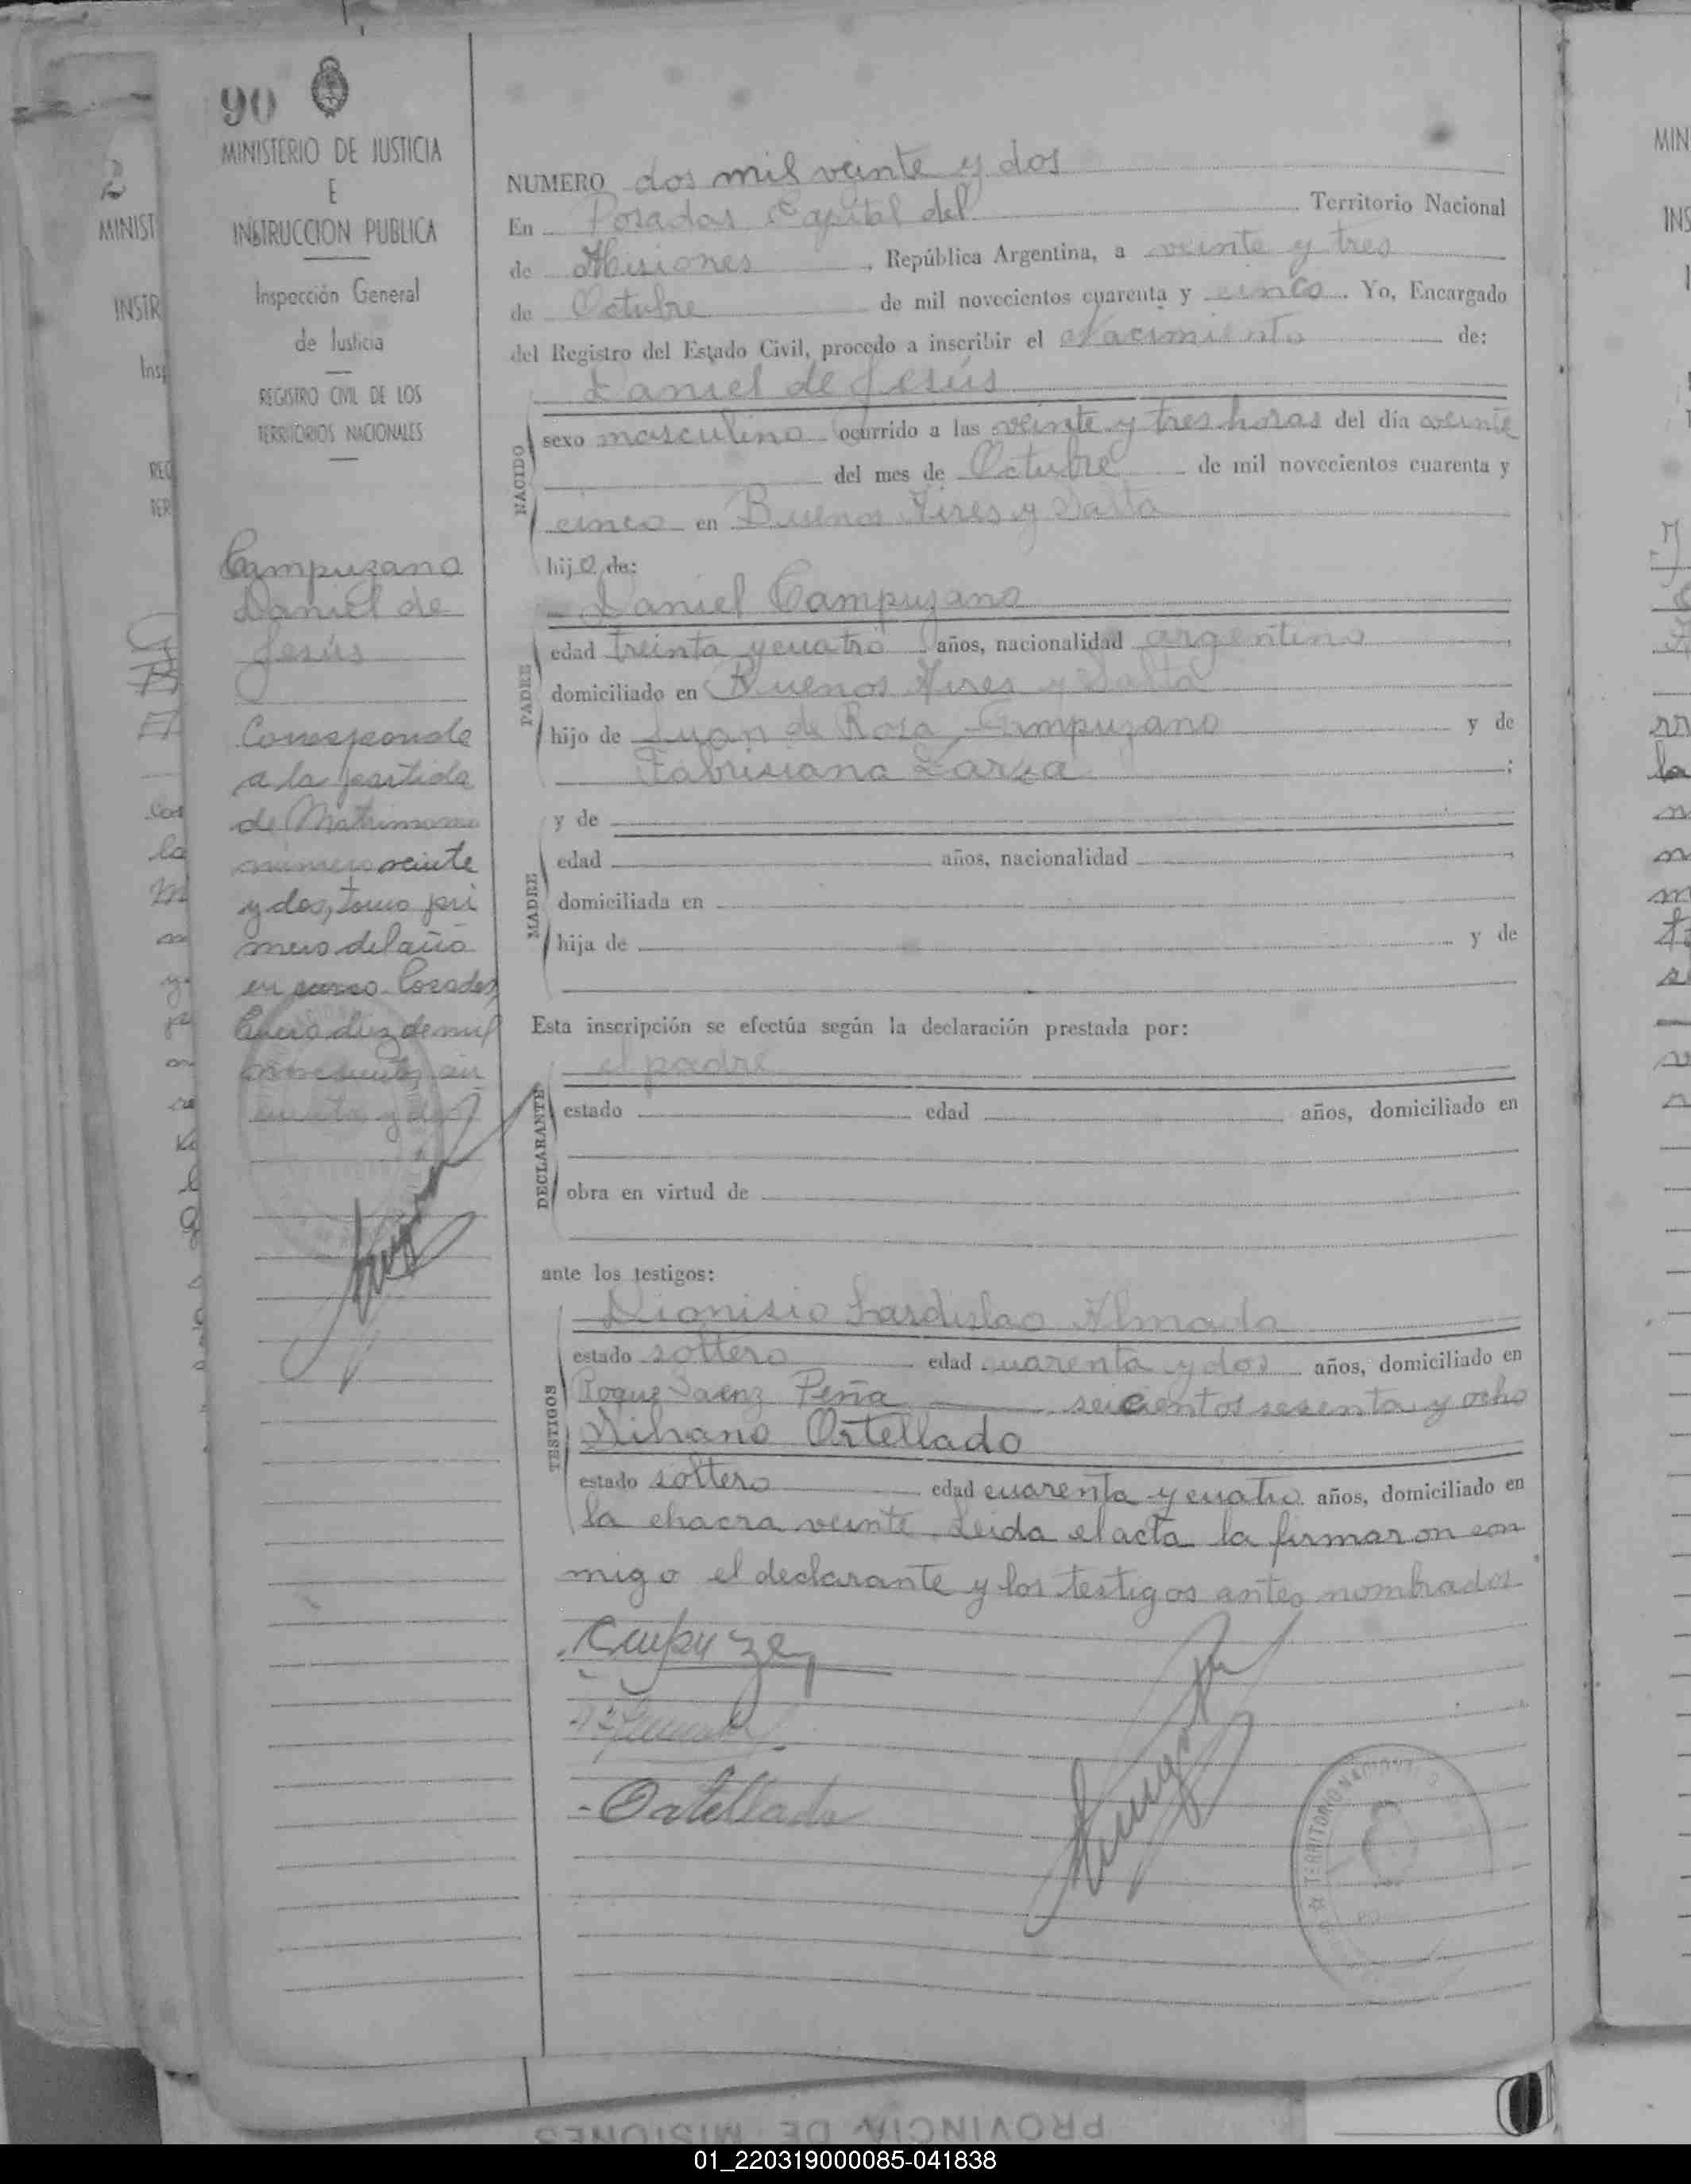 90
MINISTERIO DE JUSTICIA
E
INSTRUCCION PUBLICA
Inspección General
de Justicia
REGISTRO CIVIL DE LOS
TERRITORIOS NACIONALES
Campuzano
Daniel de
Jesús
Corresponde
a la partida
de Matrimonio
número veinte
y dos, tomo pri
mero del año
en curso Posadas,
Enero diez de mil
novecientos cin
cuenta y dos
NUMERO dos mil veinte y dos
En Posadas Capital del Territorio Nacional
de Misiones, República Argentina, a veinte y tres
de Octubre de mil novecientos cuarenta y cinco. Yo, Encargado
del Registro del Estado Civil, procedo a inscribir el Nacimiento de:
Daniel de Jesús
NACIDO
sexo masculino ocurrido a las veinte y tres horas del día veinte
del mes de Octubre de mil novecientos cuarenta y
cinco en Buenos Aires y Salta
hijo de:
Daniel Campuzano
PADRE
edad treinta y cuatro años, nacionalidad argentino,
domiciliado en Buenos Aires y Salta
hijo de Juan de Rosa Campuzano y de
Fabrisiana Zarza;
y de
MADRE
edad años, nacionalidad,
domiciliada en
hija de y de
Esta inscripción se efectúa según la declaración prestada por:
el padre
DECLARANTE
estado edad años, domiciliado en
obra en virtud de
ante los testigos:
Dionisio Lardislao Almada
TESTIGOS
estado soltero edad cuarenta y dos años, domiciliado en
Roque Saenz Peña seicientos sesenta y ocho
Silvano Ortellado
estado soltero edad cuarenta y cuatro años, domiciliado en
la chacra veinte. Leida el acta la firmaron con
migo el declarante y los testigos antes nombrados
- Ortellado
TERRITORIO NACIONAL
PROVINCIA DE MISIONES
01_220319000085-041838